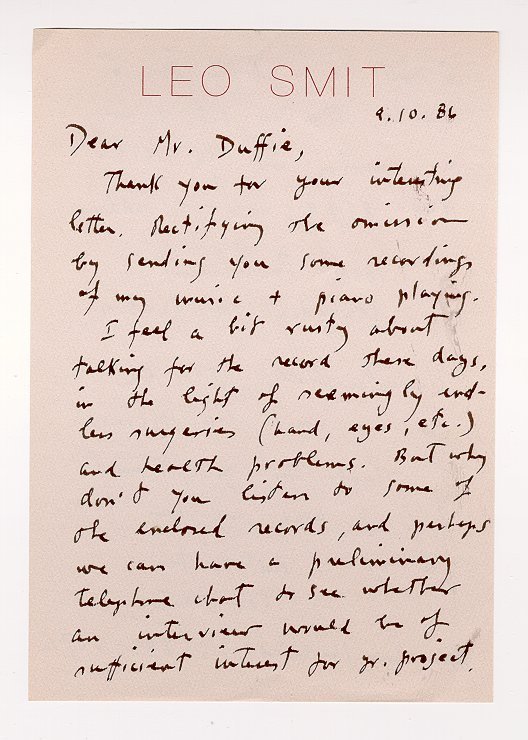 LEO SMIT
9.10.86
Dear Mr. Duffie,
Thank you for your interesting
letter. Rectifying the omission
by sending you some recordings
of my music + piano playing.
I feel a bit rusty about
talking for the record these days,
in the light of seemingly end-
less surgeries (hand, eyes, etc.)
and health problems. But why
don't you listen to some of
the enclosed records, and perhaps
we can have a preliminary
telephone chat to see whether
an interview would be of
sufficient interest for yr. project.